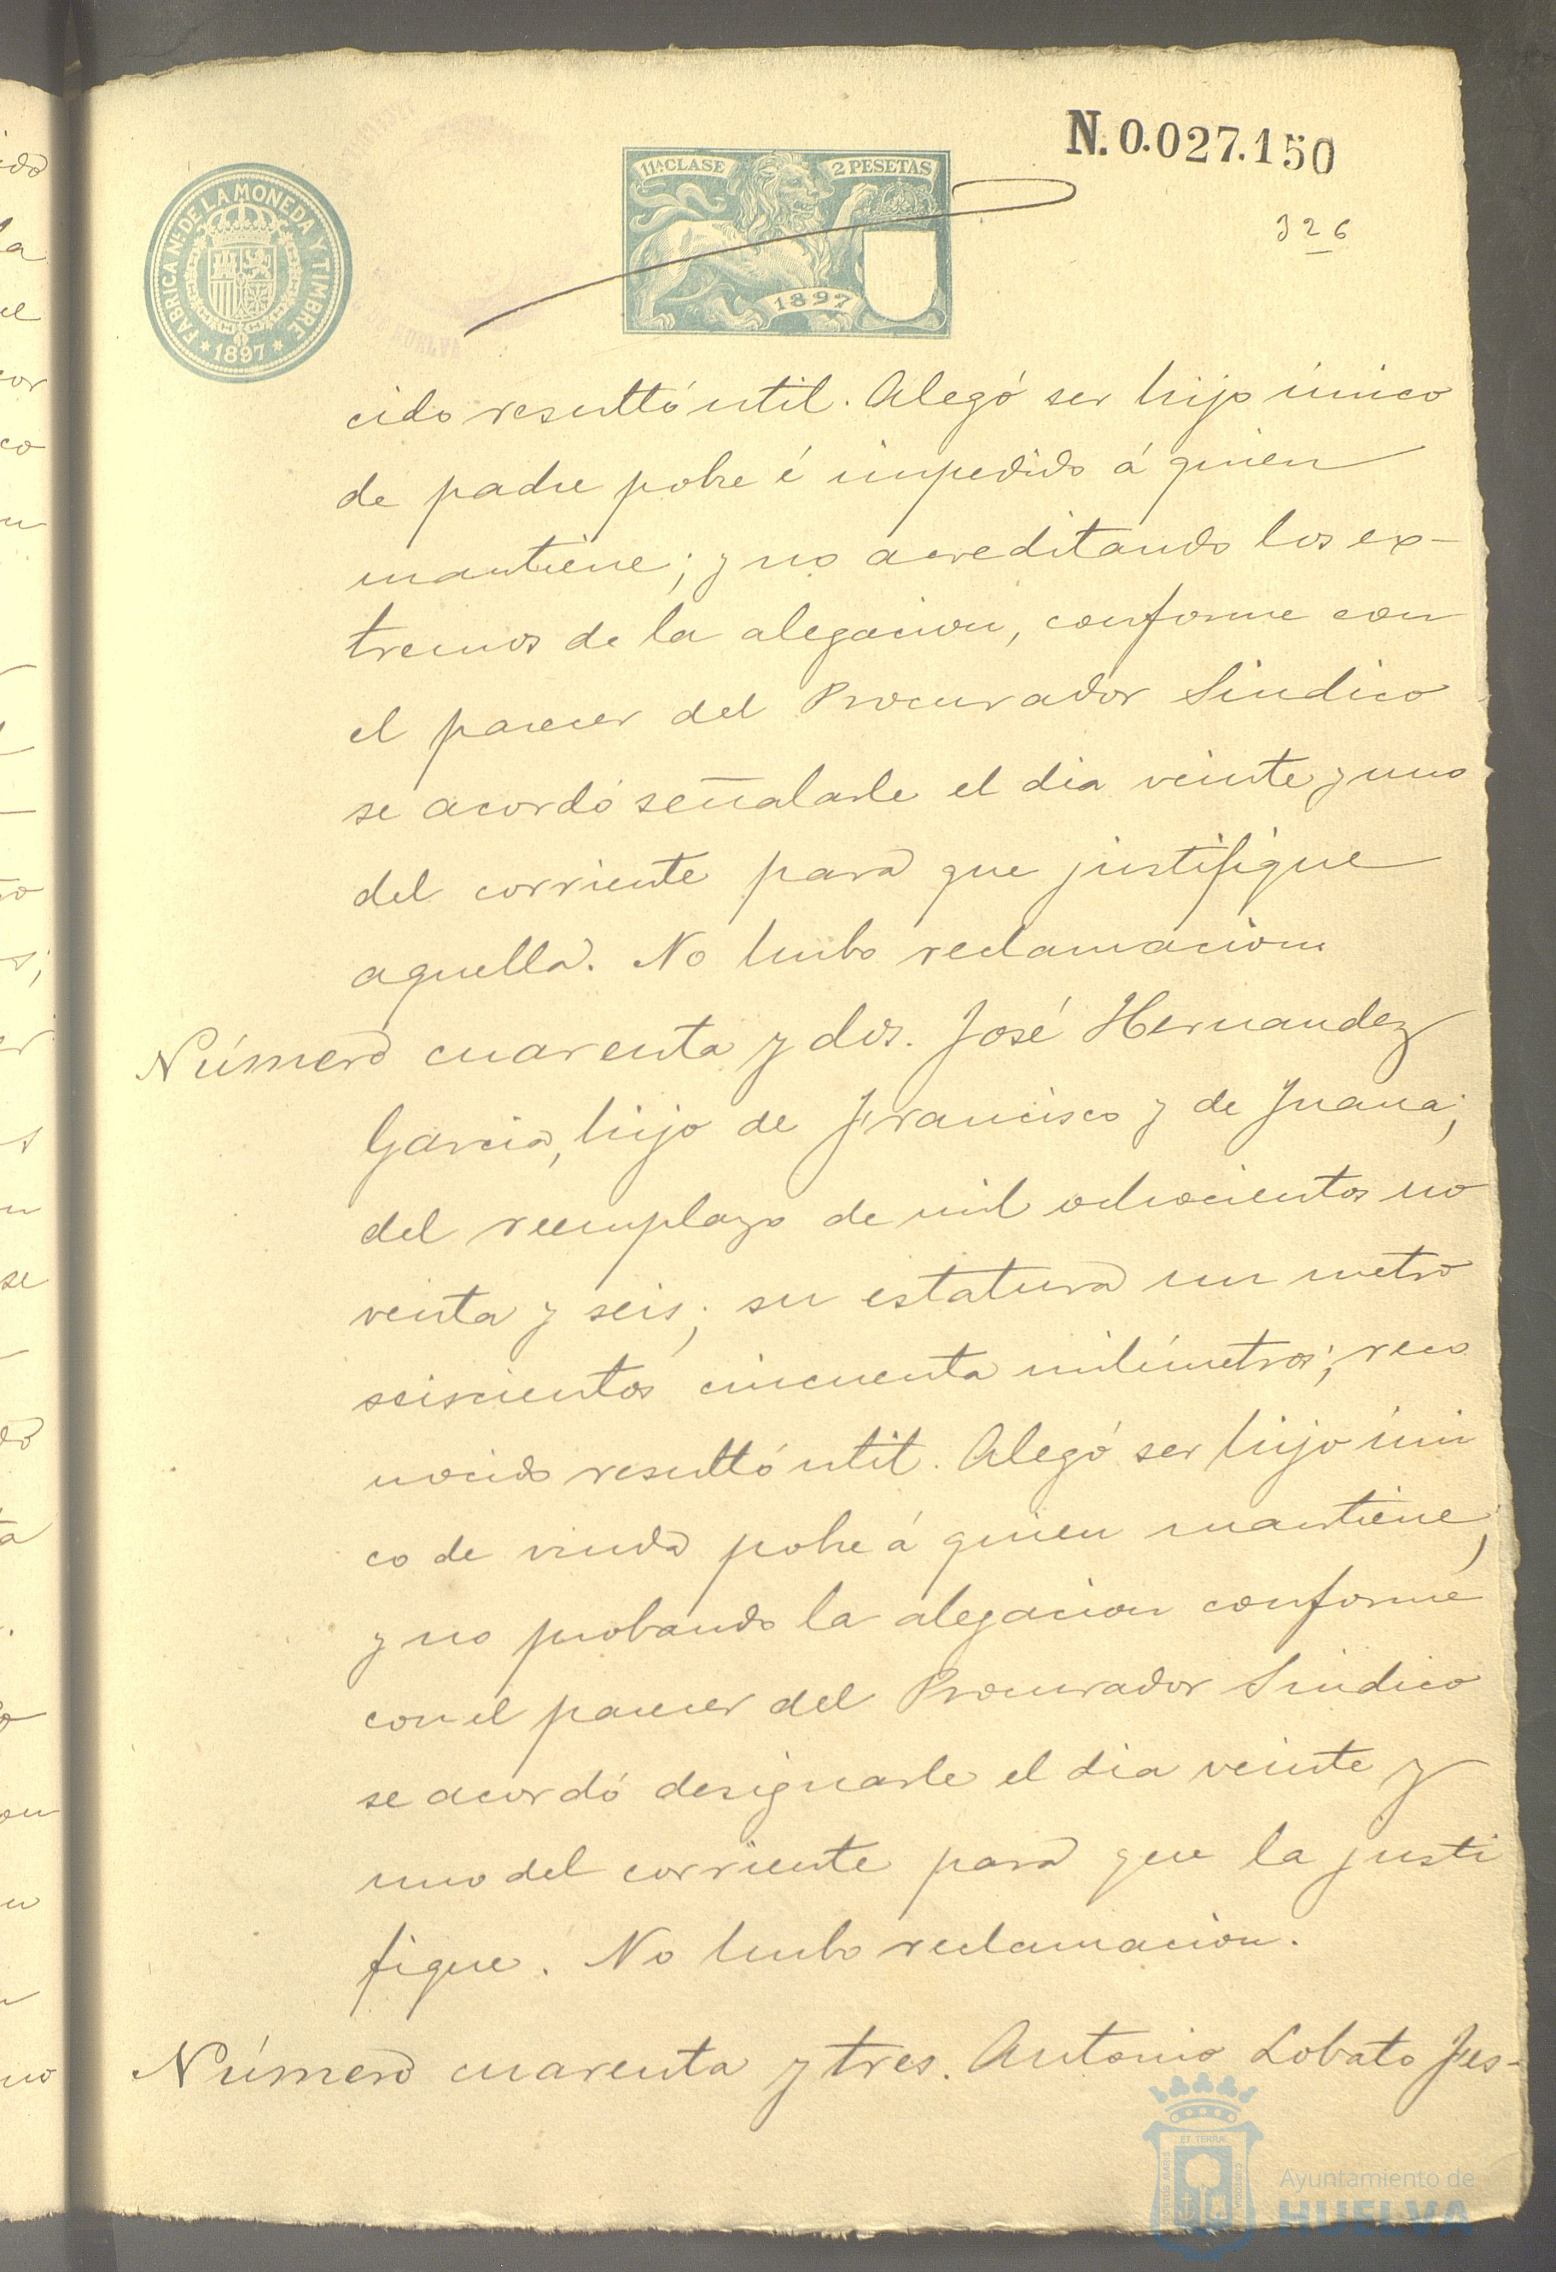 N. 0.027.150
11ª CLASE 2 PESETAS
1897
FABRICA Nal. DE LA MONEDA Y TIMBRE
* 1897 *
DE HUELVA
326
cido resultó util. Alegó ser hijo único
de padre pobre é impedido á quien
mantiene; y no acreditando los ex-
tremos de la alegacion, conforme con
el parecer del Procurador Sindico
se acordó señalarle el dia veinte y uno
del corriente para que justifique
aquella. No hubo reclamacion.
Número cuarenta y dos. José Hernandez
Garcia, hijo de Francisco y de Juana;
del reemplazo de mil ochocientos no
venta y seis; su estatura un metro
seiscientos cincuenta milímetros; reco
nocido resultó util. Alegó ser hijo úni
co de viuda pobre á quien mantiene;
y no probando la alegacion conforme
con el parecer del Procurador Sindico
se acordó designarle el dia veinte y
uno del corriente para que la justi
fique. No hubo reclamacion.
Número cuarenta y tres. Antonio Lobato Jes-
Ayuntamiento de
HUELVA